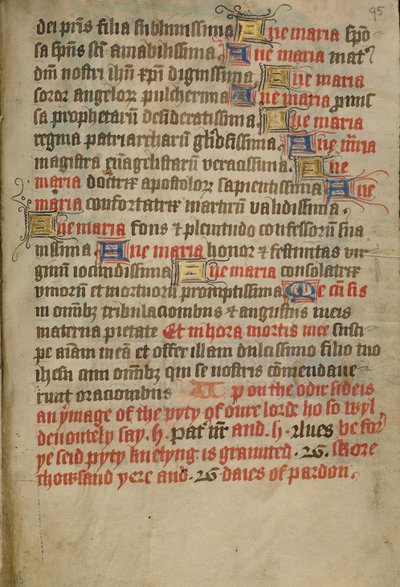 95
dei pris filia sublimissima Aue maria spō
sa spūs scī amabilissima. Aue maria mat'
dn̄i nostri ihū xp̄i dignissima. Aue maria
soror angelor pulcherima Aue maria pmis
sa prophetarum desideratissima. Aue maria
regina patriarcharum gl'iosissima. Aue m̄ria
magistra euāgelistarum veracissima. Aue
maria doctrix apostolor sapientissima Aue
maria confortatrix martirum validissima.
Aue maria fons & plenitudo confessorum sua
uissima. Aue maria honor & festiuitas vir
ginum iocundissima Aue maria consolatrix
viuorū et mortuorū promptissima Me cū sis
in omībz tribulacionibus & angustiis meis
materna pietate Et in hora mortis mee suscī
pe aīam meā et offer illam dulcissimo filio tuo
ihesu cum omībz qui se nostris cōmendaue
runt oracionibus p on the odir side is
an ymage of the pyty of oure lorde ho so wyl
deuoutely say .h. pat' nr̄ and .h. Aues be for
ye seid pyty knelyng is graunted . 26. skore
thowsand yere and . 26 daies of pardon.